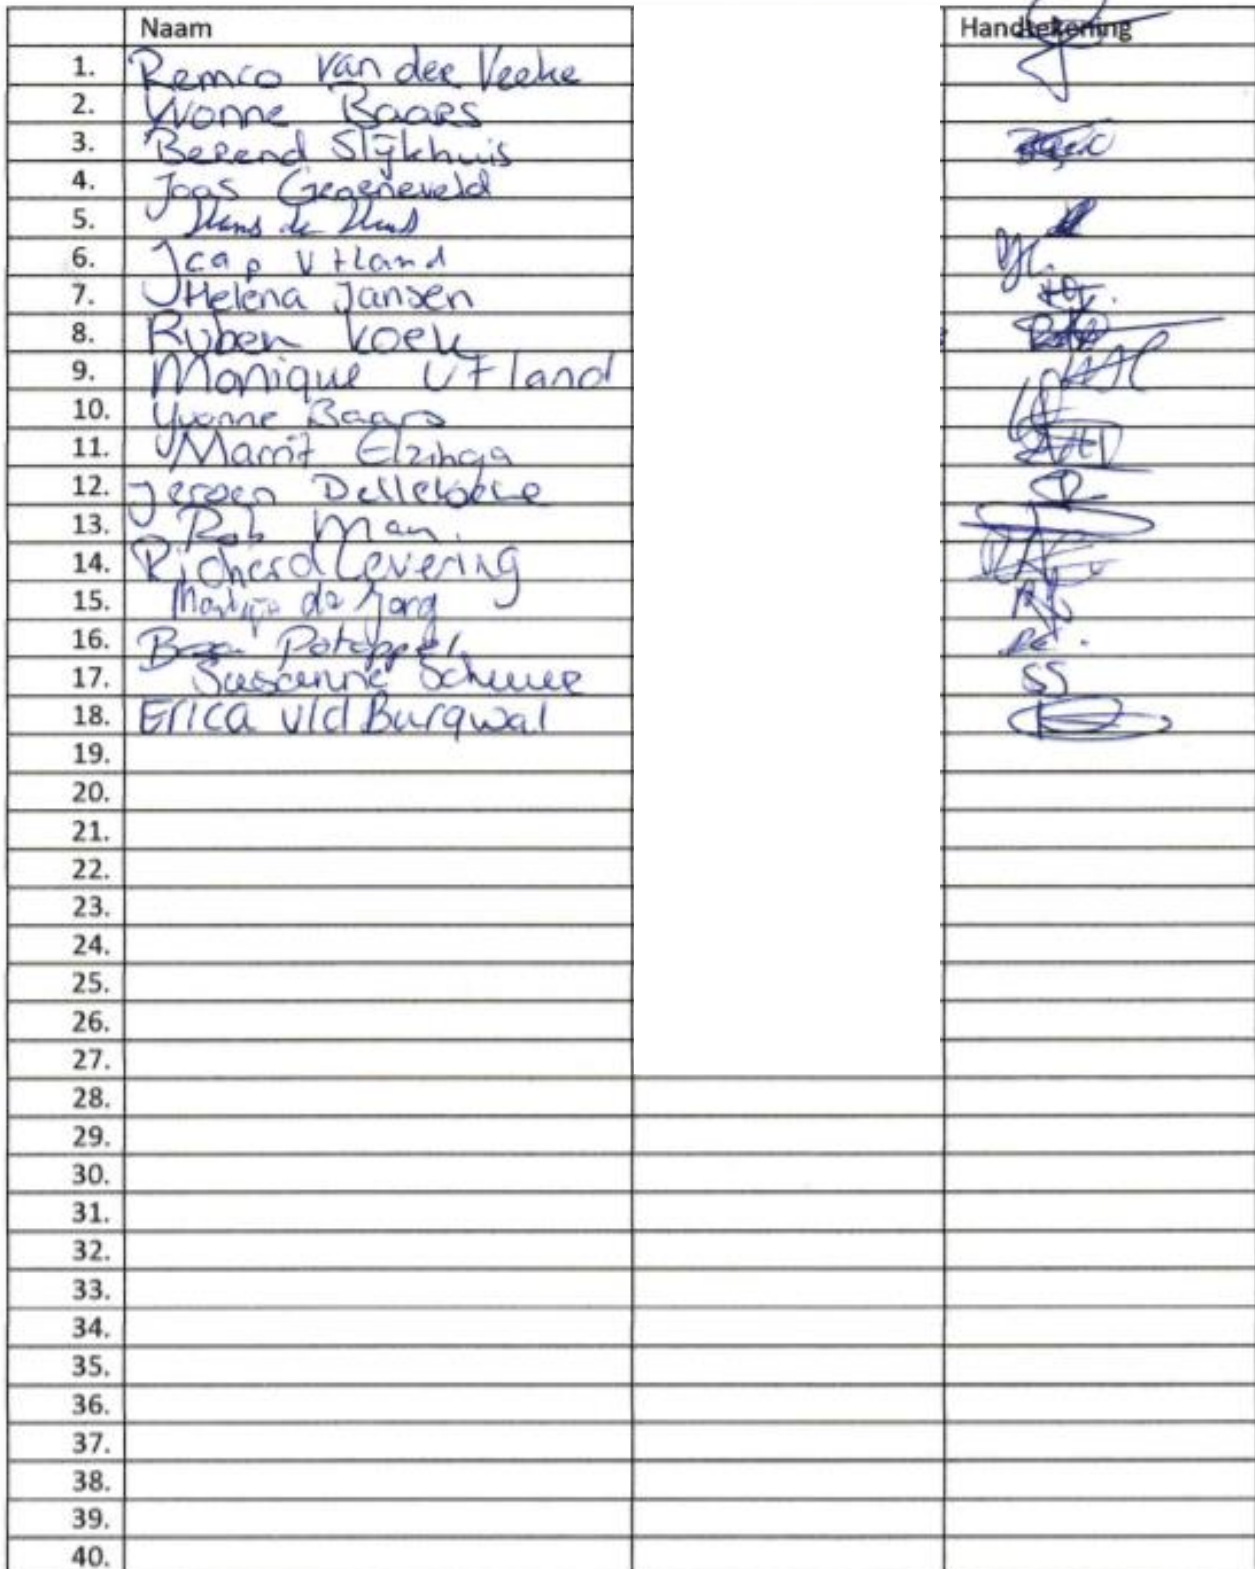 Naam Handtekening
1. Remco van der Veeke
2. Yvonne Baars
3. Berend Slijkhuis
4. Joas Groeneveld
5. Hans de
6. Jaap Vtland
7. Helena Jansen
8. Ruben Koek
9. Monique Utland
10. Yvonne Baars
11. Marrit Elzinga
12. Jeroen
13. Rob Man
14. Richard Levering
15. de Jong
16. Potappel
17. Susanne
18. Erica v/d Burgwal
SS
19.
20.
21.
22.
23.
24.
25.
26.
27.
28.
29.
30.
31.
32.
33.
34.
35.
36.
37.
38.
39.
40.